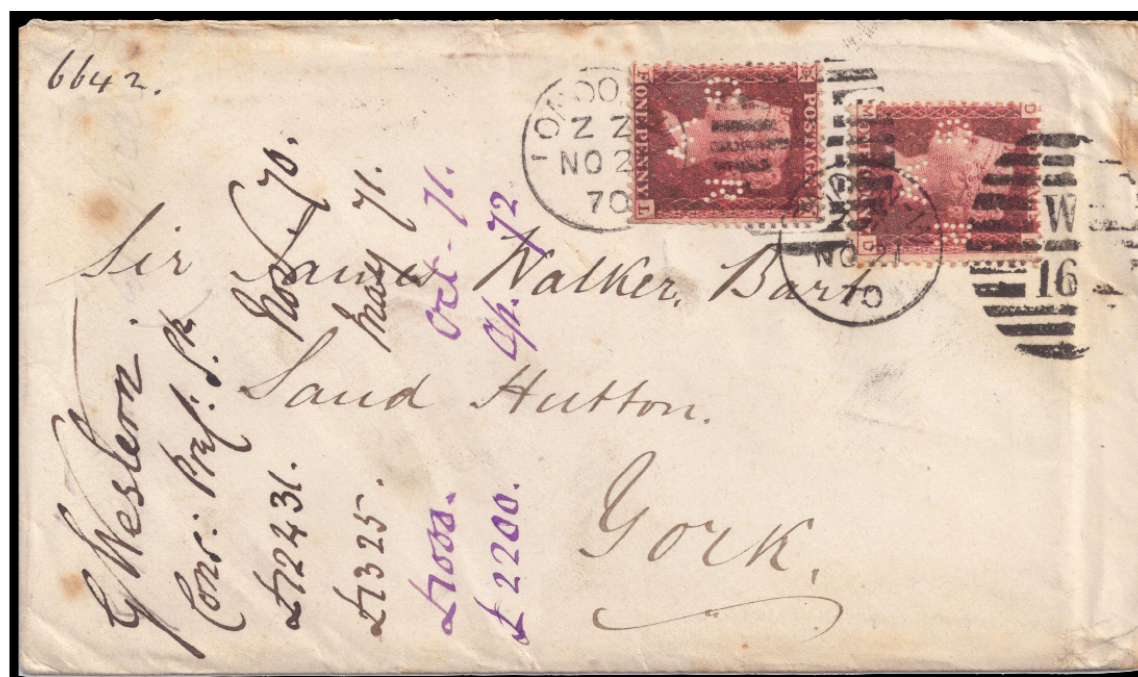 6642.
LONDON
Z Z
NO 2
70
POSTAGE
ONE PENNY
NO 21
70
W
16
Sir James Walker, Bart
Sand Hutton.
York.
G Western.
Cons: Pref: Sk
£12431. Nov. 70.
£1325. May 71.
£1000. Oct - 71.
£2200. Ap. 72